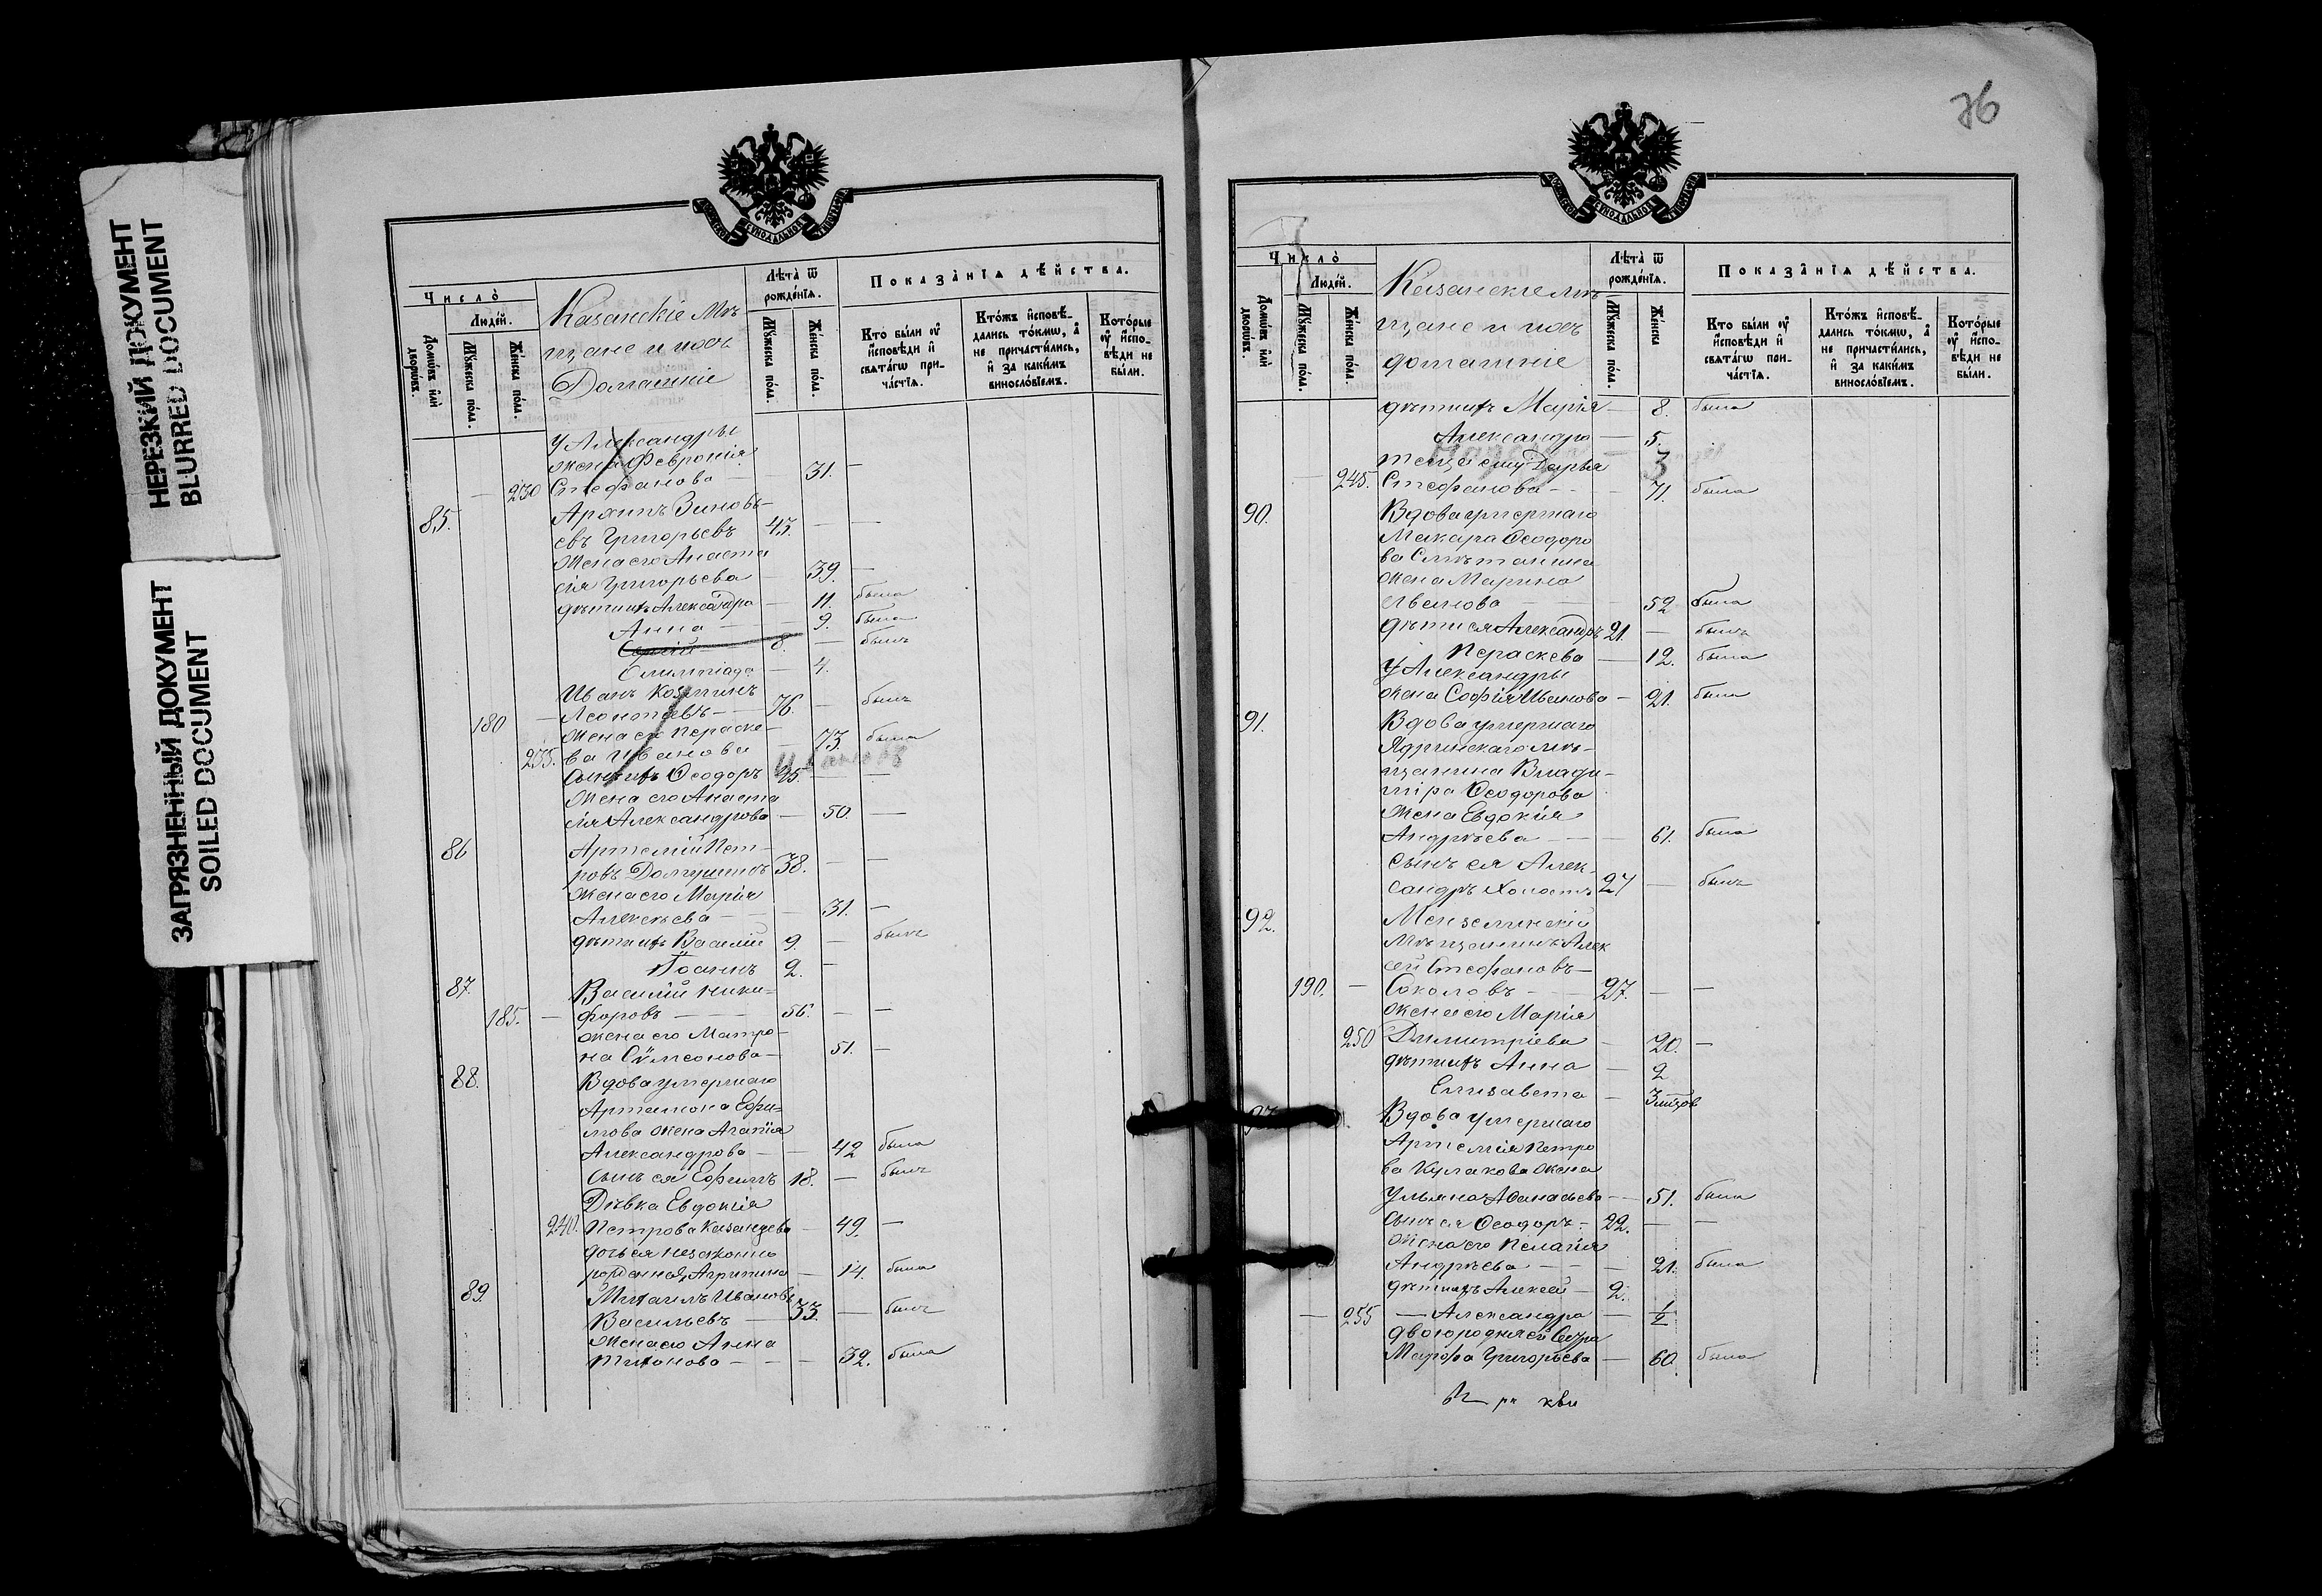 НЕРЕЗКИЙ ДОКУМЕНТ
BLURRED DOCUMENT
ЗАГРЯЗНЕННЫЙ ДОКУМЕНТ
SOILED DOCUMENT
Число̀
Людей.
Домѡвъ или дворѡвъ.
Мꙋжеска пола.
Женска пола.
Казанскіе мѣ
щане и ихъ
Домашніе
Лѣта ѿ рожденїѧ.
Мꙋжеска пола.
Женска пола.
Показанїѧ дѣйства.
Кто были оу исповѣди и свѧтагѡ причастїѧ.
Ктожъ исповѣдались токмѡ, а не причастились, и за какимъ винословїемъ.
Которые оу исповѣди не были.
У Александры
жена Феврония
230 Стефанова — 31. —
85. Архипъ Зиновь-
евъ Григорьевъ 43. — —
Жена его Анаста
сія Григорьева — 39. —
дѣти ихъ Александра — 11. была
Анна — 9. была
Сергій 8. — былъ
Олимпіада — 4.
Иванъ Козминъ
180 — Леонтьевъ — 76. — былъ
Жена его Параске-
235. ва Иванова — 73. была
Сынъ ихъ Ѳеодоръ — —
Жена его Анаста
сія Александрова — 50. —
86 Артемій Пет-
ровъ Долгушинъ 38. — —
Жена его Марія
Алексѣева — 31. —
дѣти ихъ Василій 9. — былъ
Іоаннъ 2. —
87. Василій Ники-
185. — форовъ — 56. — —
жена его Матро-
на Сѵмеонова — 51. —
88. Вдова умершаго
Артамона Ефи-
мова жена Агапія
Александрова — 42 была
Сынъ ея Ефимъ 18. — былъ
Дѣвка Евдокія
240. Петрова Казанцева — 49. —
дочь ея незаконно
рожденная Агрипина — 14. была
89. Михаилъ Ивановъ
Васильевъ — 33. — былъ
Жена его Анна
Тихонова — 32. была
76
Число̀
Людей.
Домѡвъ или дворѡвъ.
Мꙋжеска пола.
Женска пола.
Казанскіе мѣ
щане и ихъ
домашніе
Лѣта ѿ рожденїѧ.
Мꙋжеска пола.
Женска
Показанїѧ дѣйства.
Кто были оу исповѣди и свѧтагѡ причастїѧ.
Ктожъ исповѣдались токмѡ, а не причастились, и за какимъ винословїемъ.
Которые оу исповѣди не были.
дѣти ихъ Марія — 8. была
Александра — 5.
3
теща ему Дарья
— 245. Стефанова — 71. была
90. Вдова умершаго
Макара Ѳеодоро
ва Смѣтанина
жена Марина
Иванова — 52 была
дѣти ея Александръ 21. — былъ
Параскева — 12. была
У Александры
жена Софія Иванова — 21. была
91. Вдова умершаго
Ядринскаго мѣ-
щанина Влади-
міра Ѳеодорова
жена Евдокія
Андреѣва — 61. была
сынъ ея Алек-
сандръ холостъ 27 — былъ
92. Мензелинскій
мѣщанинъ Алек
сей Стефановъ —
190. — Соколовъ — 27. — —
жена его Марія
250 Димитріева — 20. —
дѣти ихъ Анна — 2
Елизавета — 3 мѣсяцов
93. Вдова умершаго
Артемія Петро
ва Кулакова жена
Ульяна Аѳанасьева — 51. была
сынъ ея Ѳеодоръ — 22. — —
жена его Пелагія
Андреѣва — 21. была
дѣти ихъ Алексей — 2.
— 255 — Александра — ½
двоюродная сестра
Марфа Григорьева — 60. была